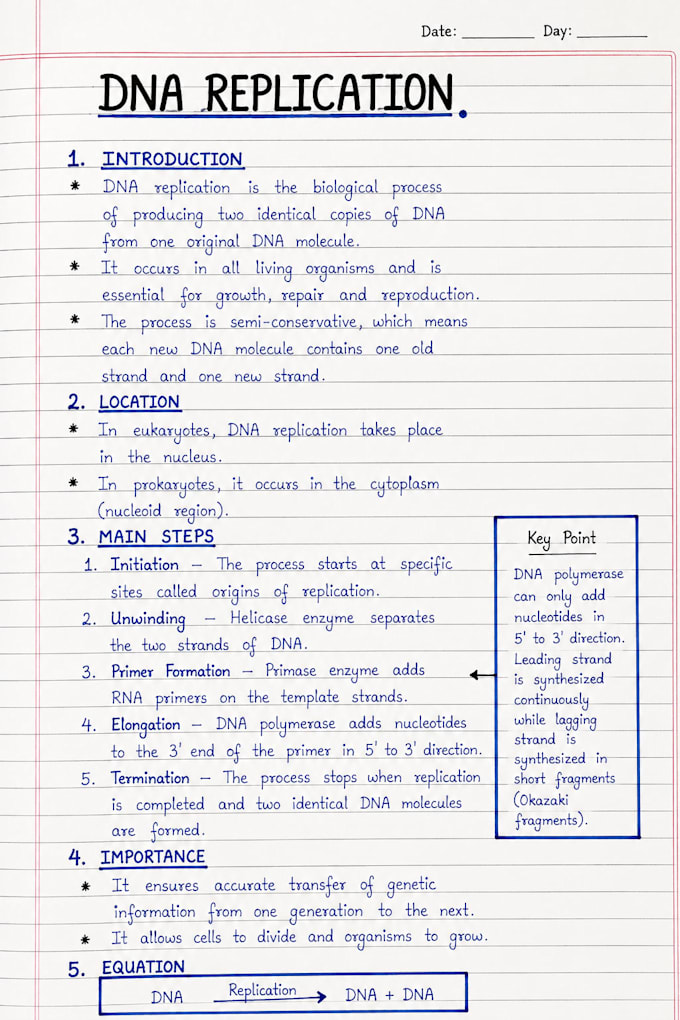 Date: ________ Day: ________
DNA REPLICATION.
1. INTRODUCTION
* DNA replication is the biological process
of producing two identical copies of DNA
from one original DNA molecule.
* It occurs in all living organisms and is
essential for growth, repair and reproduction.
* The process is semi-conservative, which means
each new DNA molecule contains one old
strand and one new strand.
2. LOCATION
* In eukaryotes, DNA replication takes place
in the nucleus.
* In prokaryotes, it occurs in the cytoplasm
(nucleoid region).
3. MAIN STEPS
1. Initiation – The process starts at specific
sites called origins of replication.
2. Unwinding – Helicase enzyme separates
the two strands of DNA.
3. Primer Formation – Primase enzyme adds
RNA primers on the template strands.
4. Elongation – DNA polymerase adds nucleotides
to the 3' end of the primer in 5' to 3' direction.
5. Termination – The process stops when replication
is completed and two identical DNA molecules
are formed.
Key Point
DNA polymerase
can only add
nucleotides in
5' to 3' direction.
Leading strand
is synthesized
continuously
while lagging
strand is
synthesized in
short fragments
(Okazaki
fragments).
4. IMPORTANCE
* It ensures accurate transfer of genetic
information from one generation to the next.
* It allows cells to divide and organisms to grow.
5. EQUATION
DNA Replication → DNA + DNA